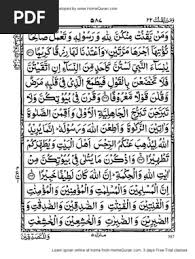 eloped by www.HomeQuran.com
ومن يقنت ٢٢ ٥٨٤
وَمَنْ يَّقْنُتْ مِنْكُنَّ لِلّٰهِ وَرَسُوْلِهٖ وَتَعْمَلْ صَالِحًا
نُّؤْتِهَآ اَجْرَهَا مَرَّتَيْنِ وَاَعْتَدْنَا لَهَا رِزْقًا كَرِيْمًا
يٰنِسَآءَ النَّبِيِّ لَسْتُنَّ كَاَحَدٍ مِّنَ النِّسَآءِ اِنِ اتَّقَيْتُنَّ
فَلَا تَخْضَعْنَ بِالْقَوْلِ فَيَطْمَعَ الَّذِيْ فِيْ قَلْبِهٖ
مَرَضٌ وَّقُلْنَ قَوْلًا مَّعْرُوْفًا وَقَرْنَ فِيْ بُيُوْتِكُنَّ وَلَا
تَبَرَّجْنَ تَبَرُّجَ الْجَاهِلِيَّةِ الْاُوْلٰى وَاَقِمْنَ الصَّلٰوةَ
وَاٰتِيْنَ الزَّكٰوةَ وَاَطِعْنَ اللّٰهَ وَرَسُوْلَهٗ اِنَّمَا يُرِيْدُ اللّٰهُ
لِيُذْهِبَ عَنْكُمُ الرِّجْسَ اَهْلَ الْبَيْتِ وَيُطَهِّرَكُمْ
تَطْهِيْرًا وَاذْكُرْنَ مَا يُتْلٰى فِيْ بُيُوْتِكُنَّ مِنْ اٰيٰتِ
اللّٰهِ وَالْحِكْمَةِ اِنَّ اللّٰهَ كَانَ لَطِيْفًا خَبِيْرًا اِنَّ
الْمُسْلِمِيْنَ وَالْمُسْلِمٰتِ وَالْمُؤْمِنِيْنَ وَالْمُؤْمِنٰتِ
وَالْقٰنِتِيْنَ وَالْقٰنِتٰتِ وَالصّٰدِقِيْنَ وَالصّٰدِقٰتِ
وَالصّٰبِرِيْنَ وَالصّٰبِرٰتِ وَالْخٰشِعِيْنَ وَالْخٰشِعٰتِ
587
Learn quran online at home from homeQuran.com, 3 days Free Trial classes